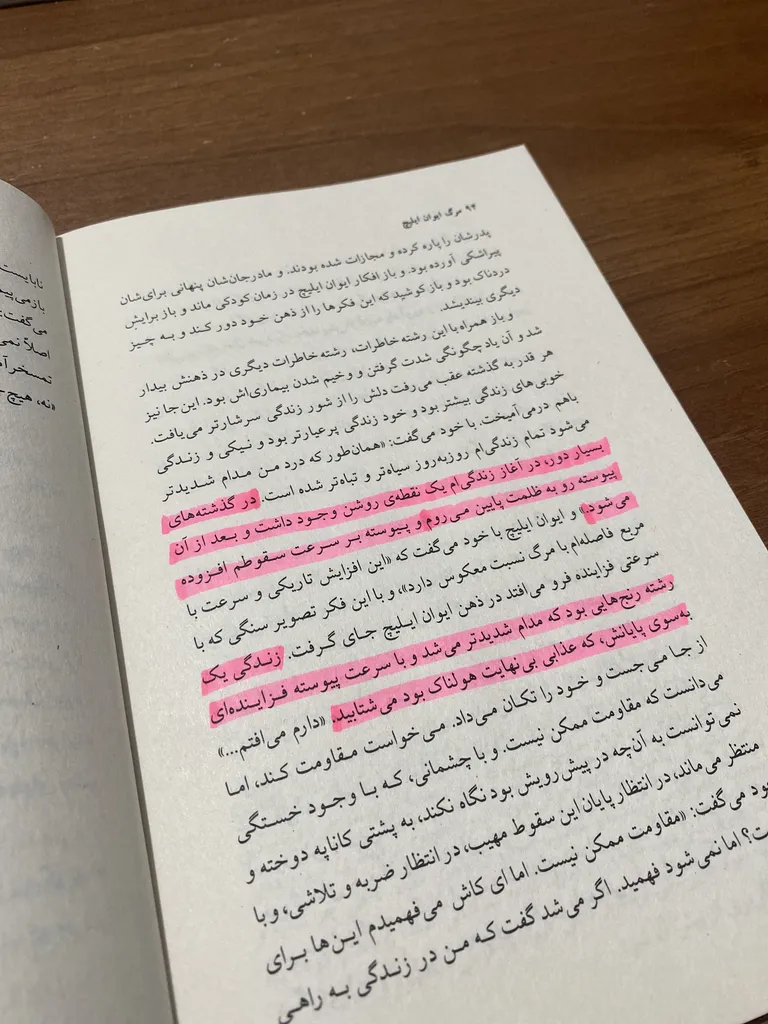 ۹۴ مرگ ایوان ایلیچ
پدرشان را پاره کرده و مجازات شده بودند. و مادرجان‌شان پنهانی برای‌شان
پیراشکی آورده بود. و باز افکار ایوان ایلیچ در زمان کودکی ماند و باز برایش
دردناک بود و باز کوشید که این فکرها را از ذهن خود دور کند و به چیز
دیگری بیندیشد.
و باز همراه با این رشته خاطرات، رشته خاطرات دیگری در ذهنش بیدار
شد و آن یاد چگونگی شدت گرفتن و وخیم شدن بیماری‌اش بود. این‌جا نیز
هر قدر به گذشته عقب می‌رفت دلش را از شور زندگی سرشارتر می‌یافت.
خوبی‌های زندگی بیشتر بود و خود زندگی پرعیارتر بود و نیکی و زندگی
باهم درمی‌آمیخت. با خود می‌گفت: «همان‌طور که درد من مدام شدیدتر
می‌شود تمام زندگی‌ام روزبه‌روز سیاه‌تر و تباه‌تر شده است. در گذشته‌های
بسیار دور، در آغاز زندگی‌ام یک نقطه‌ی روشن وجود داشت و بعد از آن
پیوسته رو به ظلمت پایین می‌روم و پیوسته بر سرعت سقوطم افزوده
می‌شود.» و ایوان ایلیچ با خود می‌گفت که «این افزایش تاریکی و سرعت با
مربع فاصله‌ام با مرگ نسبت معکوس دارد»، و با این فکر تصویر سنگی که با
سرعتی فزاینده فرو می‌افتد در ذهن ایوان ایلیچ جای گرفت. زندگی یک
رشته رنج‌هایی بود که مدام شدیدتر می‌شد و با سرعت پیوسته فزاینده‌ای
به‌سوی پایانش، که عذابی بی‌نهایت هولناک بود می‌شتابید. «دارم می‌افتم...»
از جا می‌جست و خود را تکان می‌داد. می‌خواست مقاومت کند، اما
می‌دانست که مقاومت ممکن نیست. و با چشمانی، که با وجود خستگی
نمی‌توانست به آن‌چه در پیش رویش بود نگاه نکند، به پشتی کاناپه دوخته و
منتظر می‌ماند، در انتظار پایان این سقوط مهیب، در انتظار ضربه و تلاشی، و با
می‌گفت: «مقاومت ممکن نیست. اما ای کاش می‌فهمیدم این‌ها برای
اما نمی‌شود فهمید. اگر می‌شد گفت که من در زندگی به راهی
می‌گفت:
«نه، هیچ